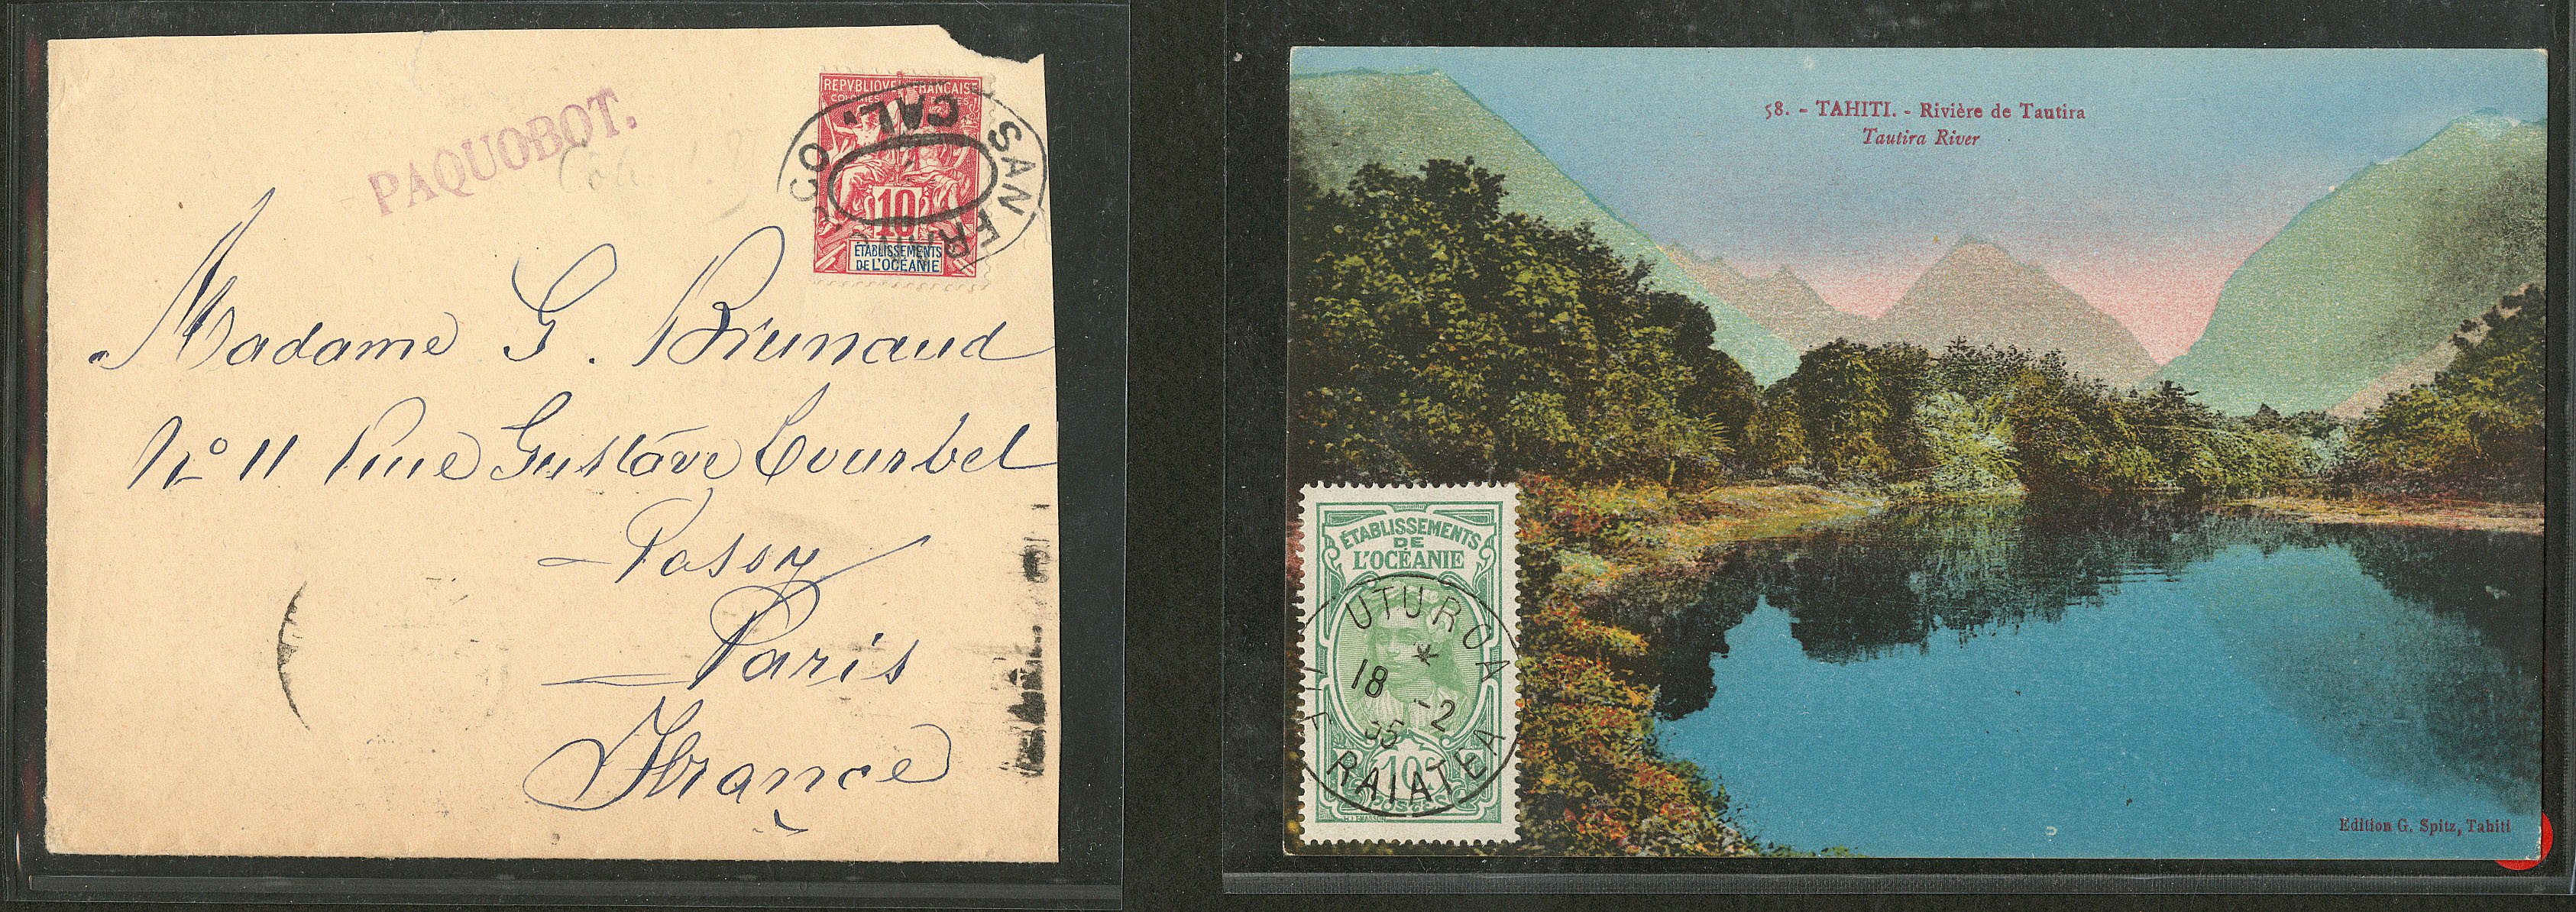 PAQUOBOT.
REPVBLIQVE FRANÇAISE
COLONIES
10
ÉTABLISSEMENTS
DE L'OCÉANIE
SAN FRANCISCO
CAL.
Madame G. Brunaud
No 11 Rue Gustave Courbet
Passy
Paris
France
58. - TAHITI. - Rivière de Tautira
Tautira River
ÉTABLISSEMENTS
DE
L'OCÉANIE
UTUROA
18 -2
35
ILE RAIATEA
10c
POSTES
Edition G. Spitz, Tahiti